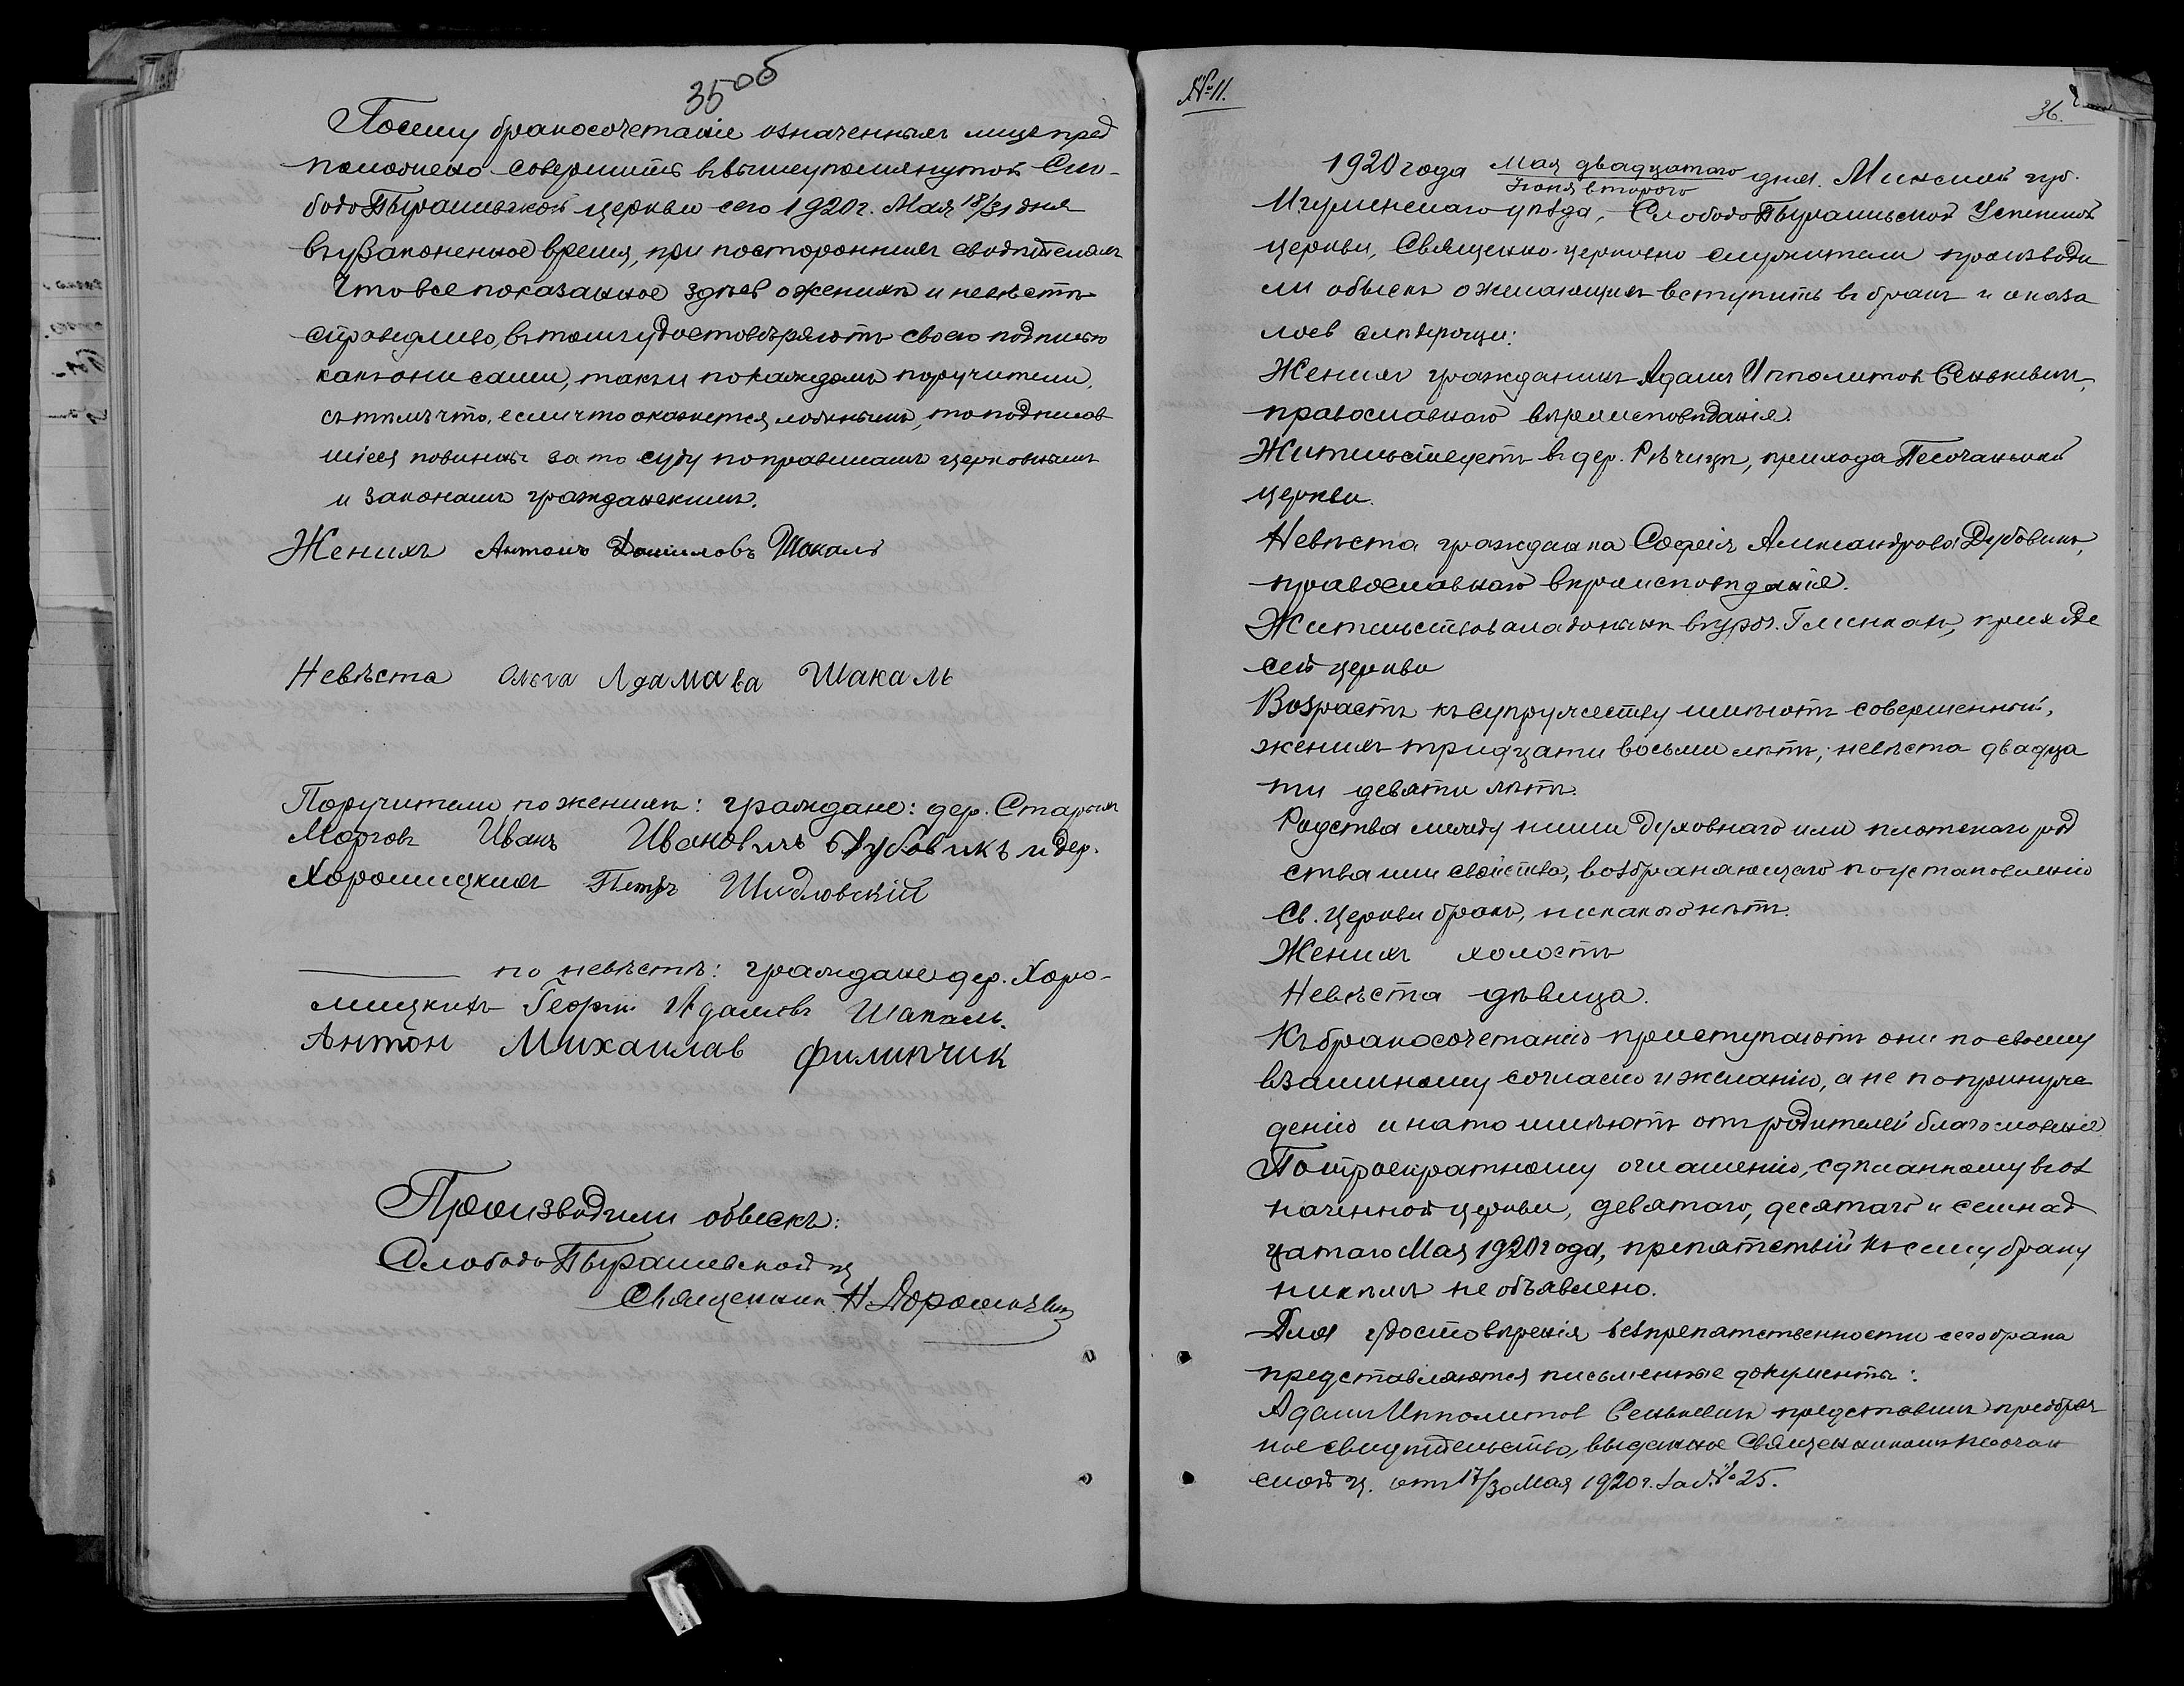 35об
Посему бракосочетаніе означенныхъ лицъ пред
положено совершить въ вышеупомянутой Сло-
бодоПырашевской церкви сего 1920 г. Мая 18/31 дня
въ узаконенное время, при постороннихъ свидѣтеляхъ
Что все показанное здѣсь о женихѣ и невѣстѣ
справедливо, въ томъ удостовѣряютъ своею подписью
какъ они сами, такъ и по каждомъ поручители,
съ тѣмъ что, если что окажется ложнымъ, то подписав
шіеся повинны за то суду по правиламъ церковнымъ
и законамъ гражданскимъ.
Женихъ Антонъ Даниловъ Шакаль
Невѣста Олга Адамава Шакаль
Поручители по женихѣ: граждане: дер. Старыхъ
Морговъ Иванъ Ивановичъ Дубовикъ и дер.
Хоромицкихъ Петръ Шидловскій
по невѣстѣ: граждане дер. Хоро-
мицкихъ Георгій Адамовъ Шакаль.
Антон Михаилав Филипчик
Производили обыскъ:
СлободоПырашевской ц
Священникъ Н. Дорошкевич
№ 11.
36.
1920 года Мая двадцатаго / Іюня второго дня. Минской губ.
Игуменскаго уѣзда, СлободоПырашевской Успенской
церкви, Священно-церковно служители производи
ли обыскъ о желающихъ вступить въ бракъ и оказа
лось слѣдующее:
Женихъ гражданинъ Адамъ Ипполитовъ Сенькевичъ,
православнаго вѣроисповѣданія.
Жительствуетъ въ дер. Рѣчицѣ, прихода Песочанской
церкви.
Невѣста гражданка Софія Александрова Дубовикъ,
православнаго вѣроисповѣданія.
Жительствовала донынѣ въ уроч. Глинкахъ, приходе
сей церкви
Возрастъ къ супружеству имѣютъ совершенный,
женихъ тридцати восьми лѣтъ; невѣста двадца
ти девяти лѣтъ.
Родства между ними духовнаго или плотскаго род
ства или свойства, возбраняющаго по установленію
Св. Церкви бракъ, никакого нѣтъ.
Женихъ холостъ
Невѣста дѣвица.
Къ бракосочетанію приступаютъ они по своему
взаимному согласію и желанію, а не по принужде
денію и на то имѣютъ отъ родителей благословеніе
По троекратному оглашенію, сдѣланному въ оз
наченной церкви, девятаго, десятаго и семнад
цатаго Мая 1920 года, препятствій къ сему браку
никѣмъ не объявлено.
Для удостовѣренія безпрепятственности сего брака
представляются письменные документы:
Адамъ Ипполитов Сенькевичъ представилъ предбрач
ное свидѣтельство, выданное Священникомъ Песочан
ской ц. отъ 17/30 Мая 1920 г. за № 25.